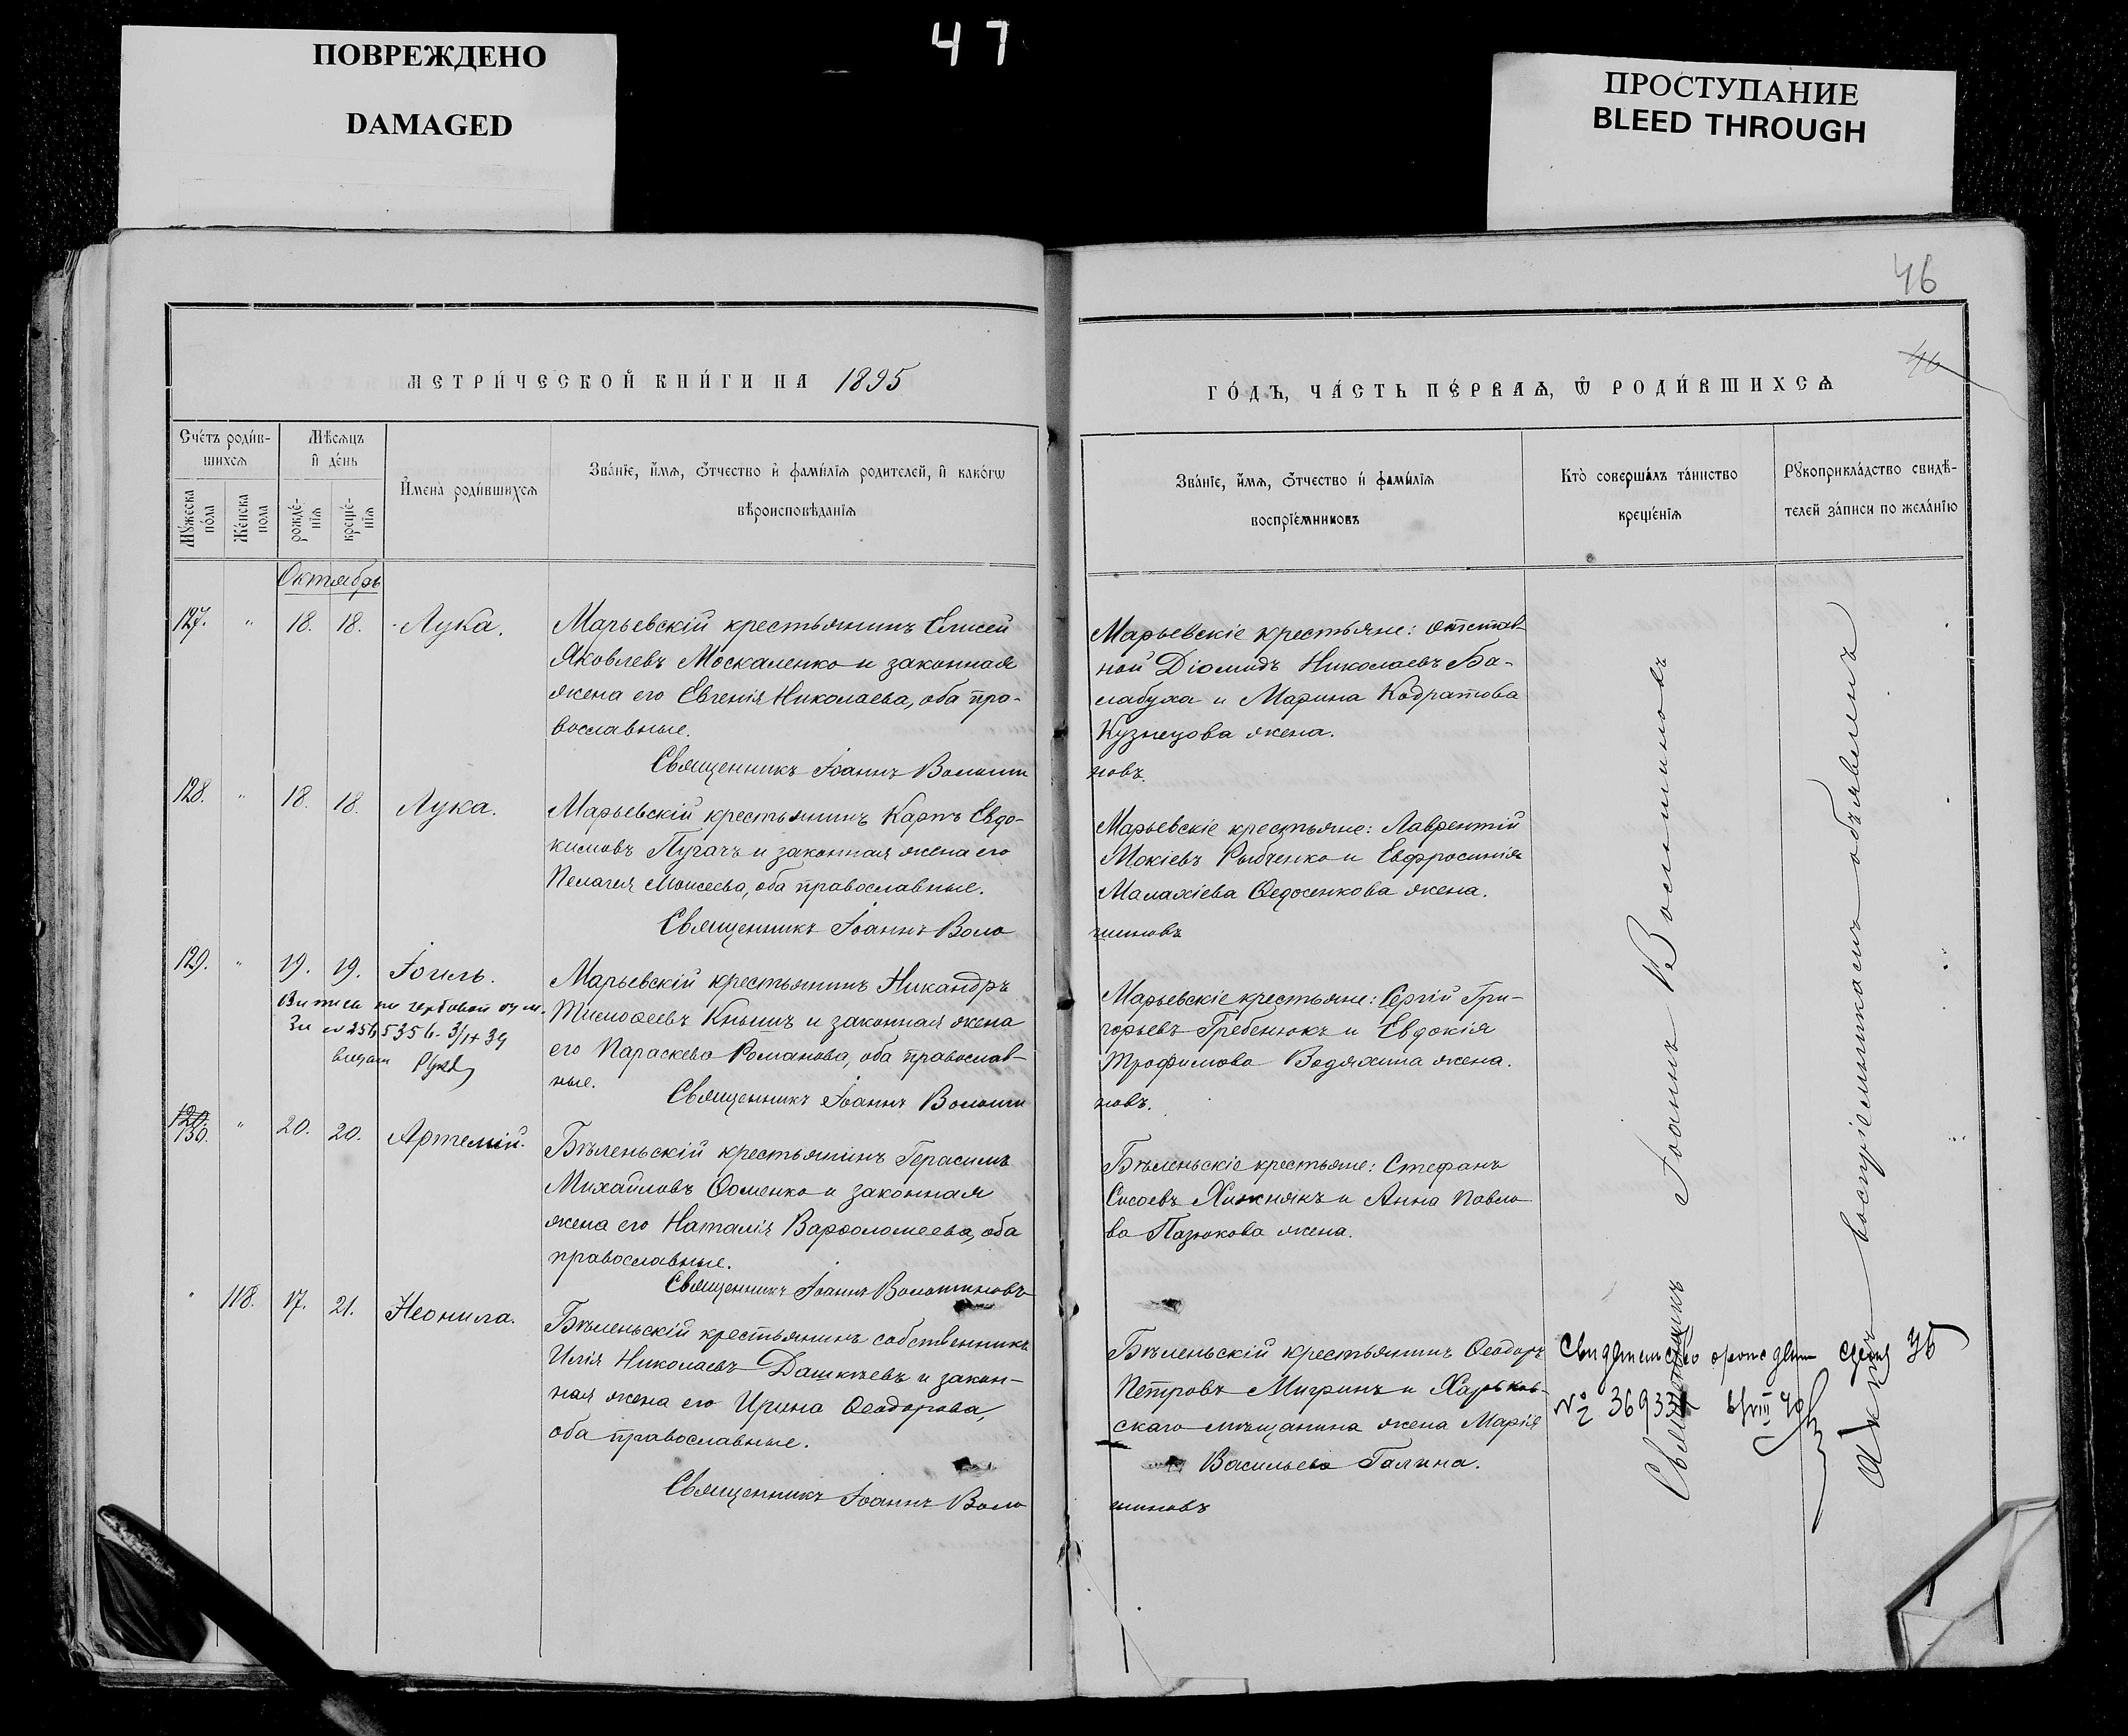 ПОВРЕЖДЕНО
DAMAGED
47
ПРОСТУПАНИЕ
BLEED THROUGH
46
46
МЕТРИ́ЧЕСКОЙ КНИ́ГИ НА 1895
Сче́тъ роди́в-
шихсѧ
Мѣ́сѧцъ
и҆ де́нь
Мꙋ́жеска
по́ла
Же́нска
пола
рожде́-
нїѧ
креще́-
нїѧ
И҆мена̀ роди́вшихсѧ
Зва́нїе, и҆́мѧ, ѻ҆́тчество и҆ фами́лїѧ родителей, и҆ како́гѡ
вѣроисповѣ́данїѧ
Октябрь
127. " 18. 18. Лука.
Марьевскій крестьянинъ Елисей
Яковлевъ Москаленко и законная
жена его Евгенія Николаева, оба пра-
вославные.
Священникъ Іоаннъ Волоши
128. " 18. 18. Лука.
Марьевскій крестьянинъ Карпъ Евдо-
кимовъ Пугачъ и законная жена его
Пелагея Моисеева, оба православные.
Священникъ Іоаннъ Воло
129. " 19. 19. Іоиль.
Марьевскій крестьянинъ Никандръ
Тимоѳеевъ Кнышъ и законная жена
его Параскева Романова, оба православ-
ные.
Священникъ Іоаннъ Волоши
120.
130. " 20. 20. Артемій.
Бѣленьскій крестьянинъ Герасимъ
Михайловъ Ѳоменко и законная
жена его Наталія Варѳоломеева, оба
православные.
Священникъ Іоаннъ Волошиновъ
" 118. 17. 21. Неонила.
Бѣленьскій крестьянинъ собственникъ
Илія Николаевъ Дашкѣевъ и закон-
ная жена его Ирина Ѳеодорова,
оба православные.
Священникъ Іоаннъ Воло
ГО́ДЪ, ЧА́СТЬ ПЕ́РВАѦ, Ѡ҆ РОДИ́ВШИХСѦ
Зва́нїе, и҆́мѧ, ѻ҆́тчество и҆ фами́лїѧ
воспрїе́мниковъ
Кто̀ соверша́лъ та́инство
креще́нїѧ
Рꙋкоприкла́дство свидѣ́-
телей за́писи по жела́нїю
Марьевскіе крестьяне: отстав-
ной Діомидъ Николаевъ Ба-
лабуха и Марина Кодратова
Кузнецова жена.
новъ.
Марьевскіе крестьяне: Лаврентій
Мокіевъ Рыбченко и Евфросинія
Малахіева Ѳедосенкова жена.
шиновъ
Марьевскіе крестьяне: Сергій Гри-
горьевъ Гребенюкъ и Евдокія
Трофимова Водяхина жена.
новъ.
Бѣленьскіе крестьяне: Стефанъ
Сисоевъ Хижнякъ и Анна Павло
ва Пазюкова жена.
Бѣленьскій крестьянинъ Ѳеодоръ
Петровъ Мигринъ и Харьков-
скаго мѣщанина жена Марія
Васильева Галина.
шиновъ
Священникъ Іоаннъ Волошиновъ
Актъ воспріемникамъ объявленъ